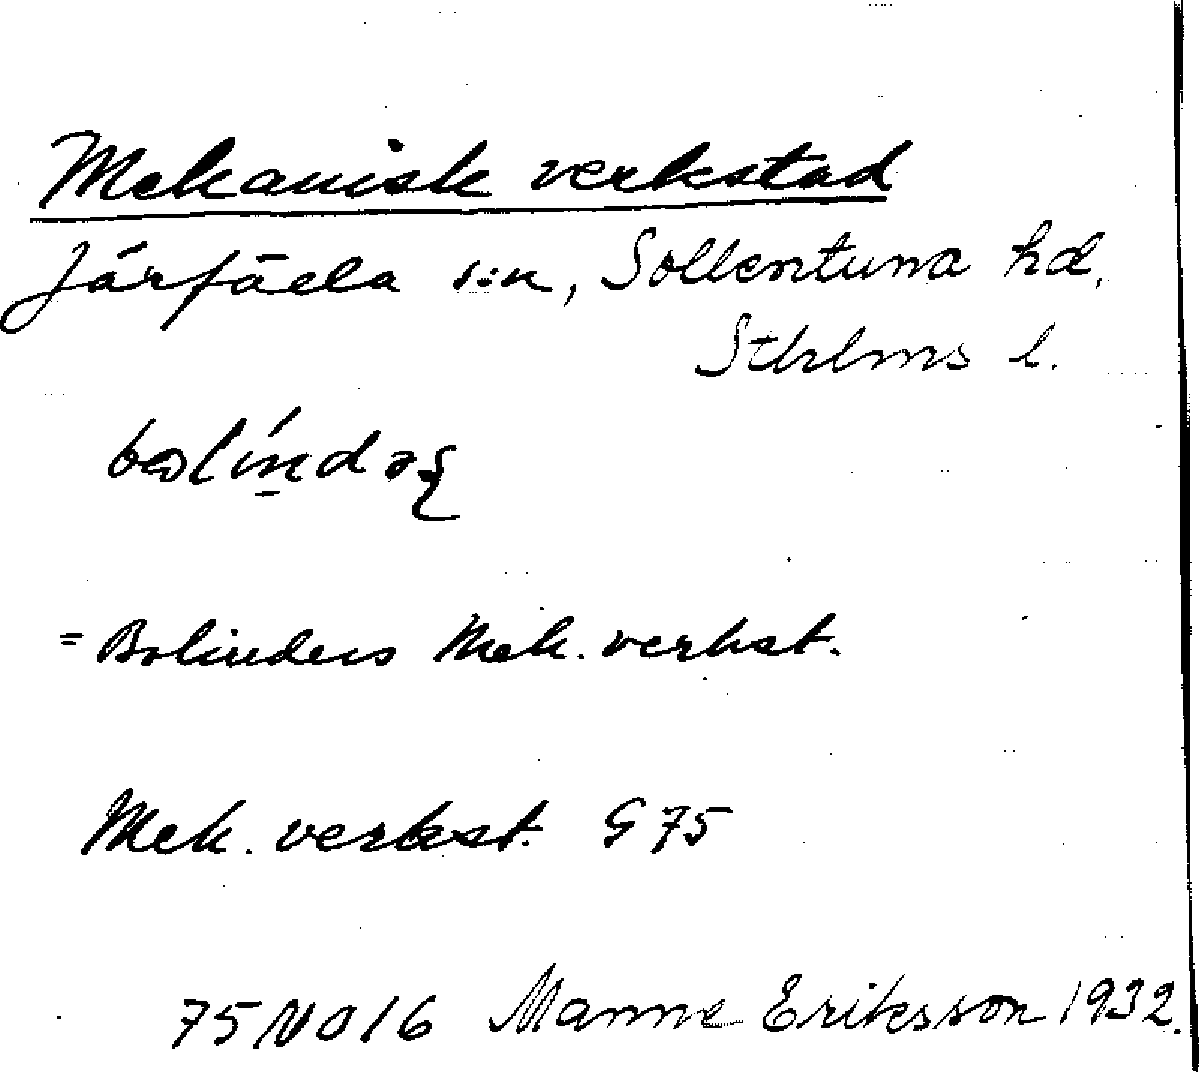 Mekanisk verkstad
Järfälla s:n, Sollentuna hd,
Sthlms l.
= Bolinders Mek. verkst.
Mek. verkst. G 75
75 NO 16 Manne Eriksson 1932.